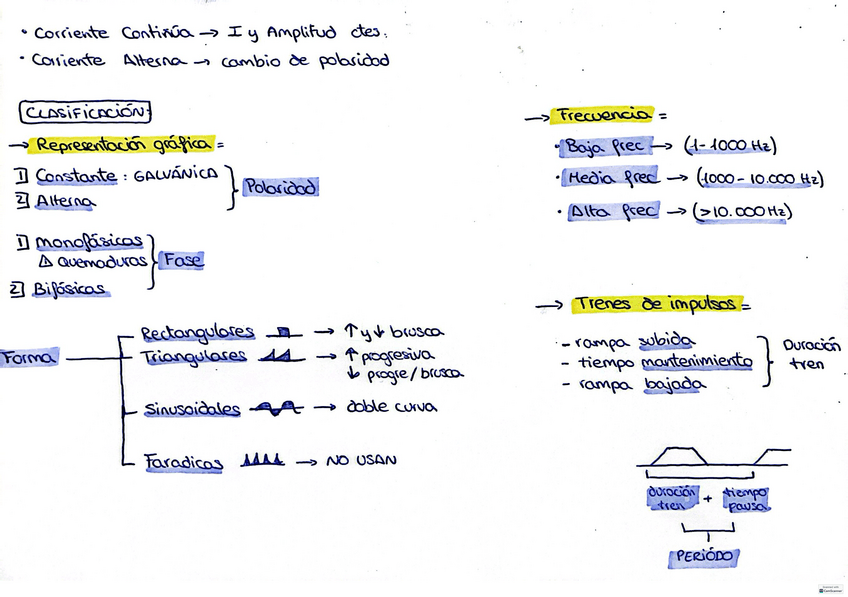 • Corriente Continúa → I y Amplitud ctes.
• Corriente Alterna → cambio de polaridad
CLASIFICACIÓN:
→ Representación gráfica =
1) Constante : GALVÁNICA
2) Alterna
} Polaridad
1) Monofásicas
⚠ Quemaduras
2) Bifásicas
} Fase
Forma
Rectangulares → ↑ y ↓ brusca
Triangulares → ↑ progresiva
↓ progre/brusca
Sinusoidales → doble curva
Faradicas → NO USAN
→ Frecuencia =
• Baja frec → (1-1000 Hz)
• Media frec → (1000-10.000 Hz)
• Alta frec → (>10.000 Hz)
→ Trenes de impulsos =
- rampa subida
- tiempo mantenimiento
- rampa bajada
} Duración
tren
duración
tren
+
tiempo
pausa
PERIÓDO
CamScanner